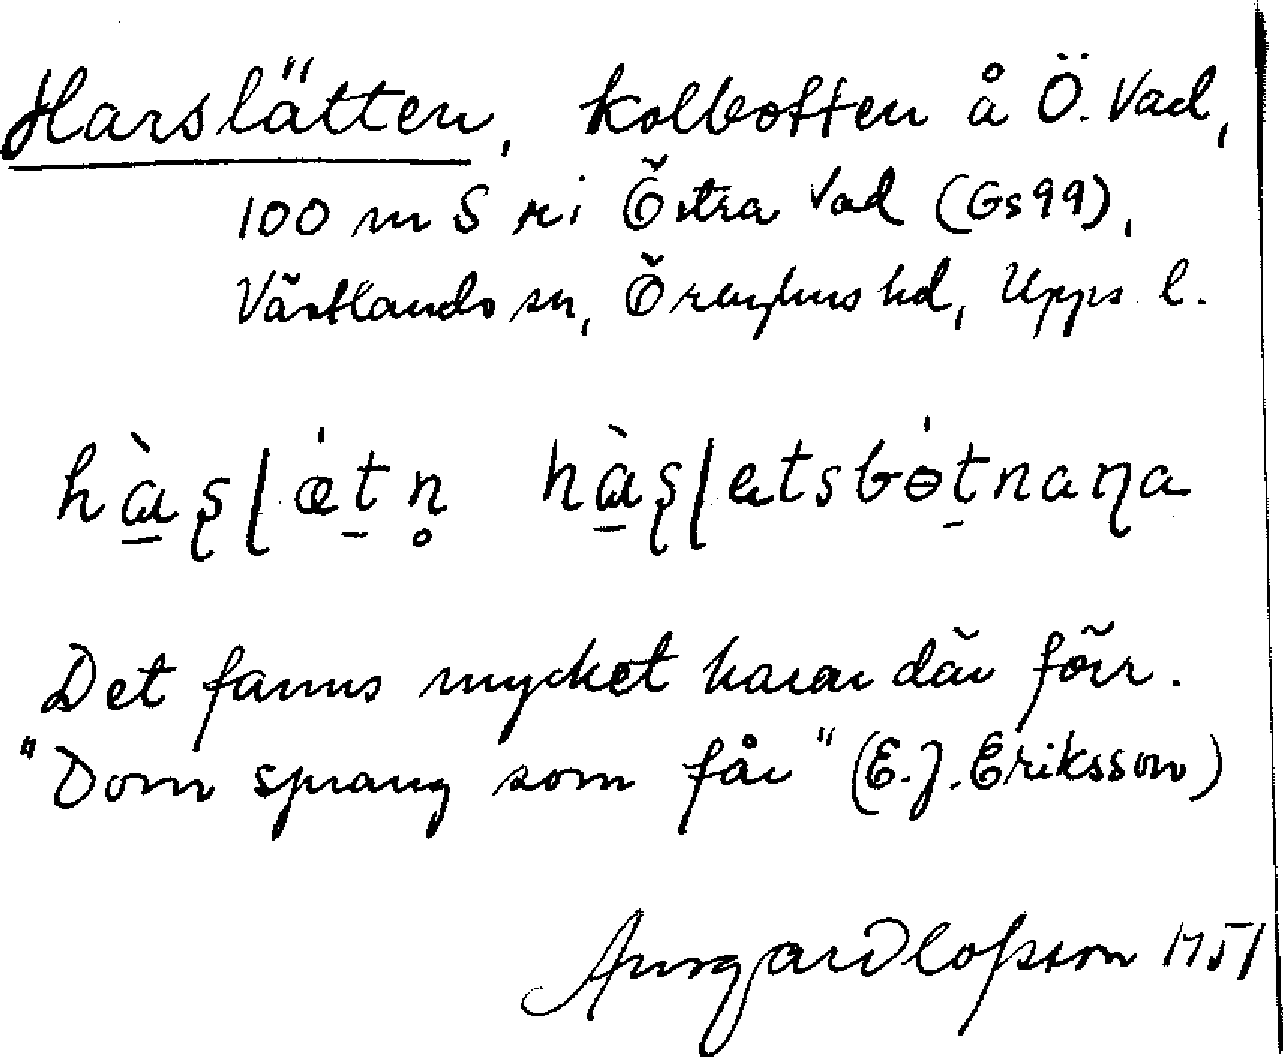 Harslätten, kolbotten å Ö. Vad,
100 m S ri Östra Vad (Gs99),
Västlands sn, Örbyhus hd, Upps. l.
hàşlætn̥ hàşlatsbötnaɳa
Det fanns mycket harar där förr.
"Dom sprang som får" (E.J. Eriksson)
Olofsson 1951